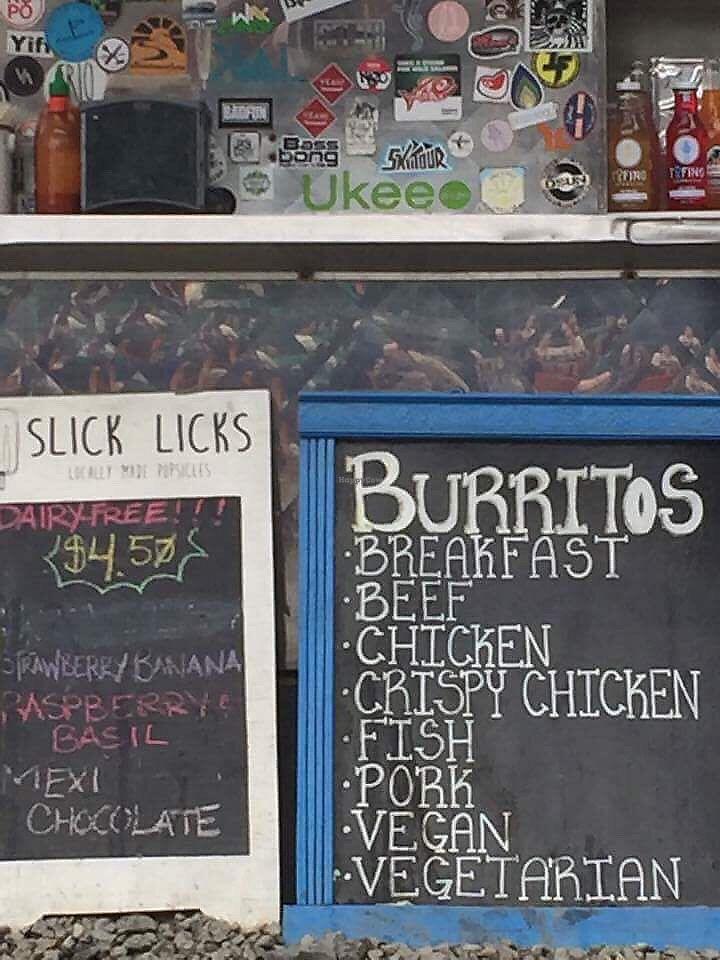 PO
Yifi
YEAH!
YEAH!
BADFUN
Bass
bong
SKITOUR
Ukee
DEUS
TOFINO
TOFINO
SLICK LICKS
LOCALLY MADE POPSICLES
DAIRY-FREE!!!
$4.50
STRAWBERRY/BANANA
RASPBERRY &
BASIL
MEXI
CHOCOLATE
HappyCow
BURRITOS
·BREAKFAST
·BEEF
·CHICKEN
·CRISPY CHICKEN
·FISH
·PORK
·VEGAN
·VEGETARIAN